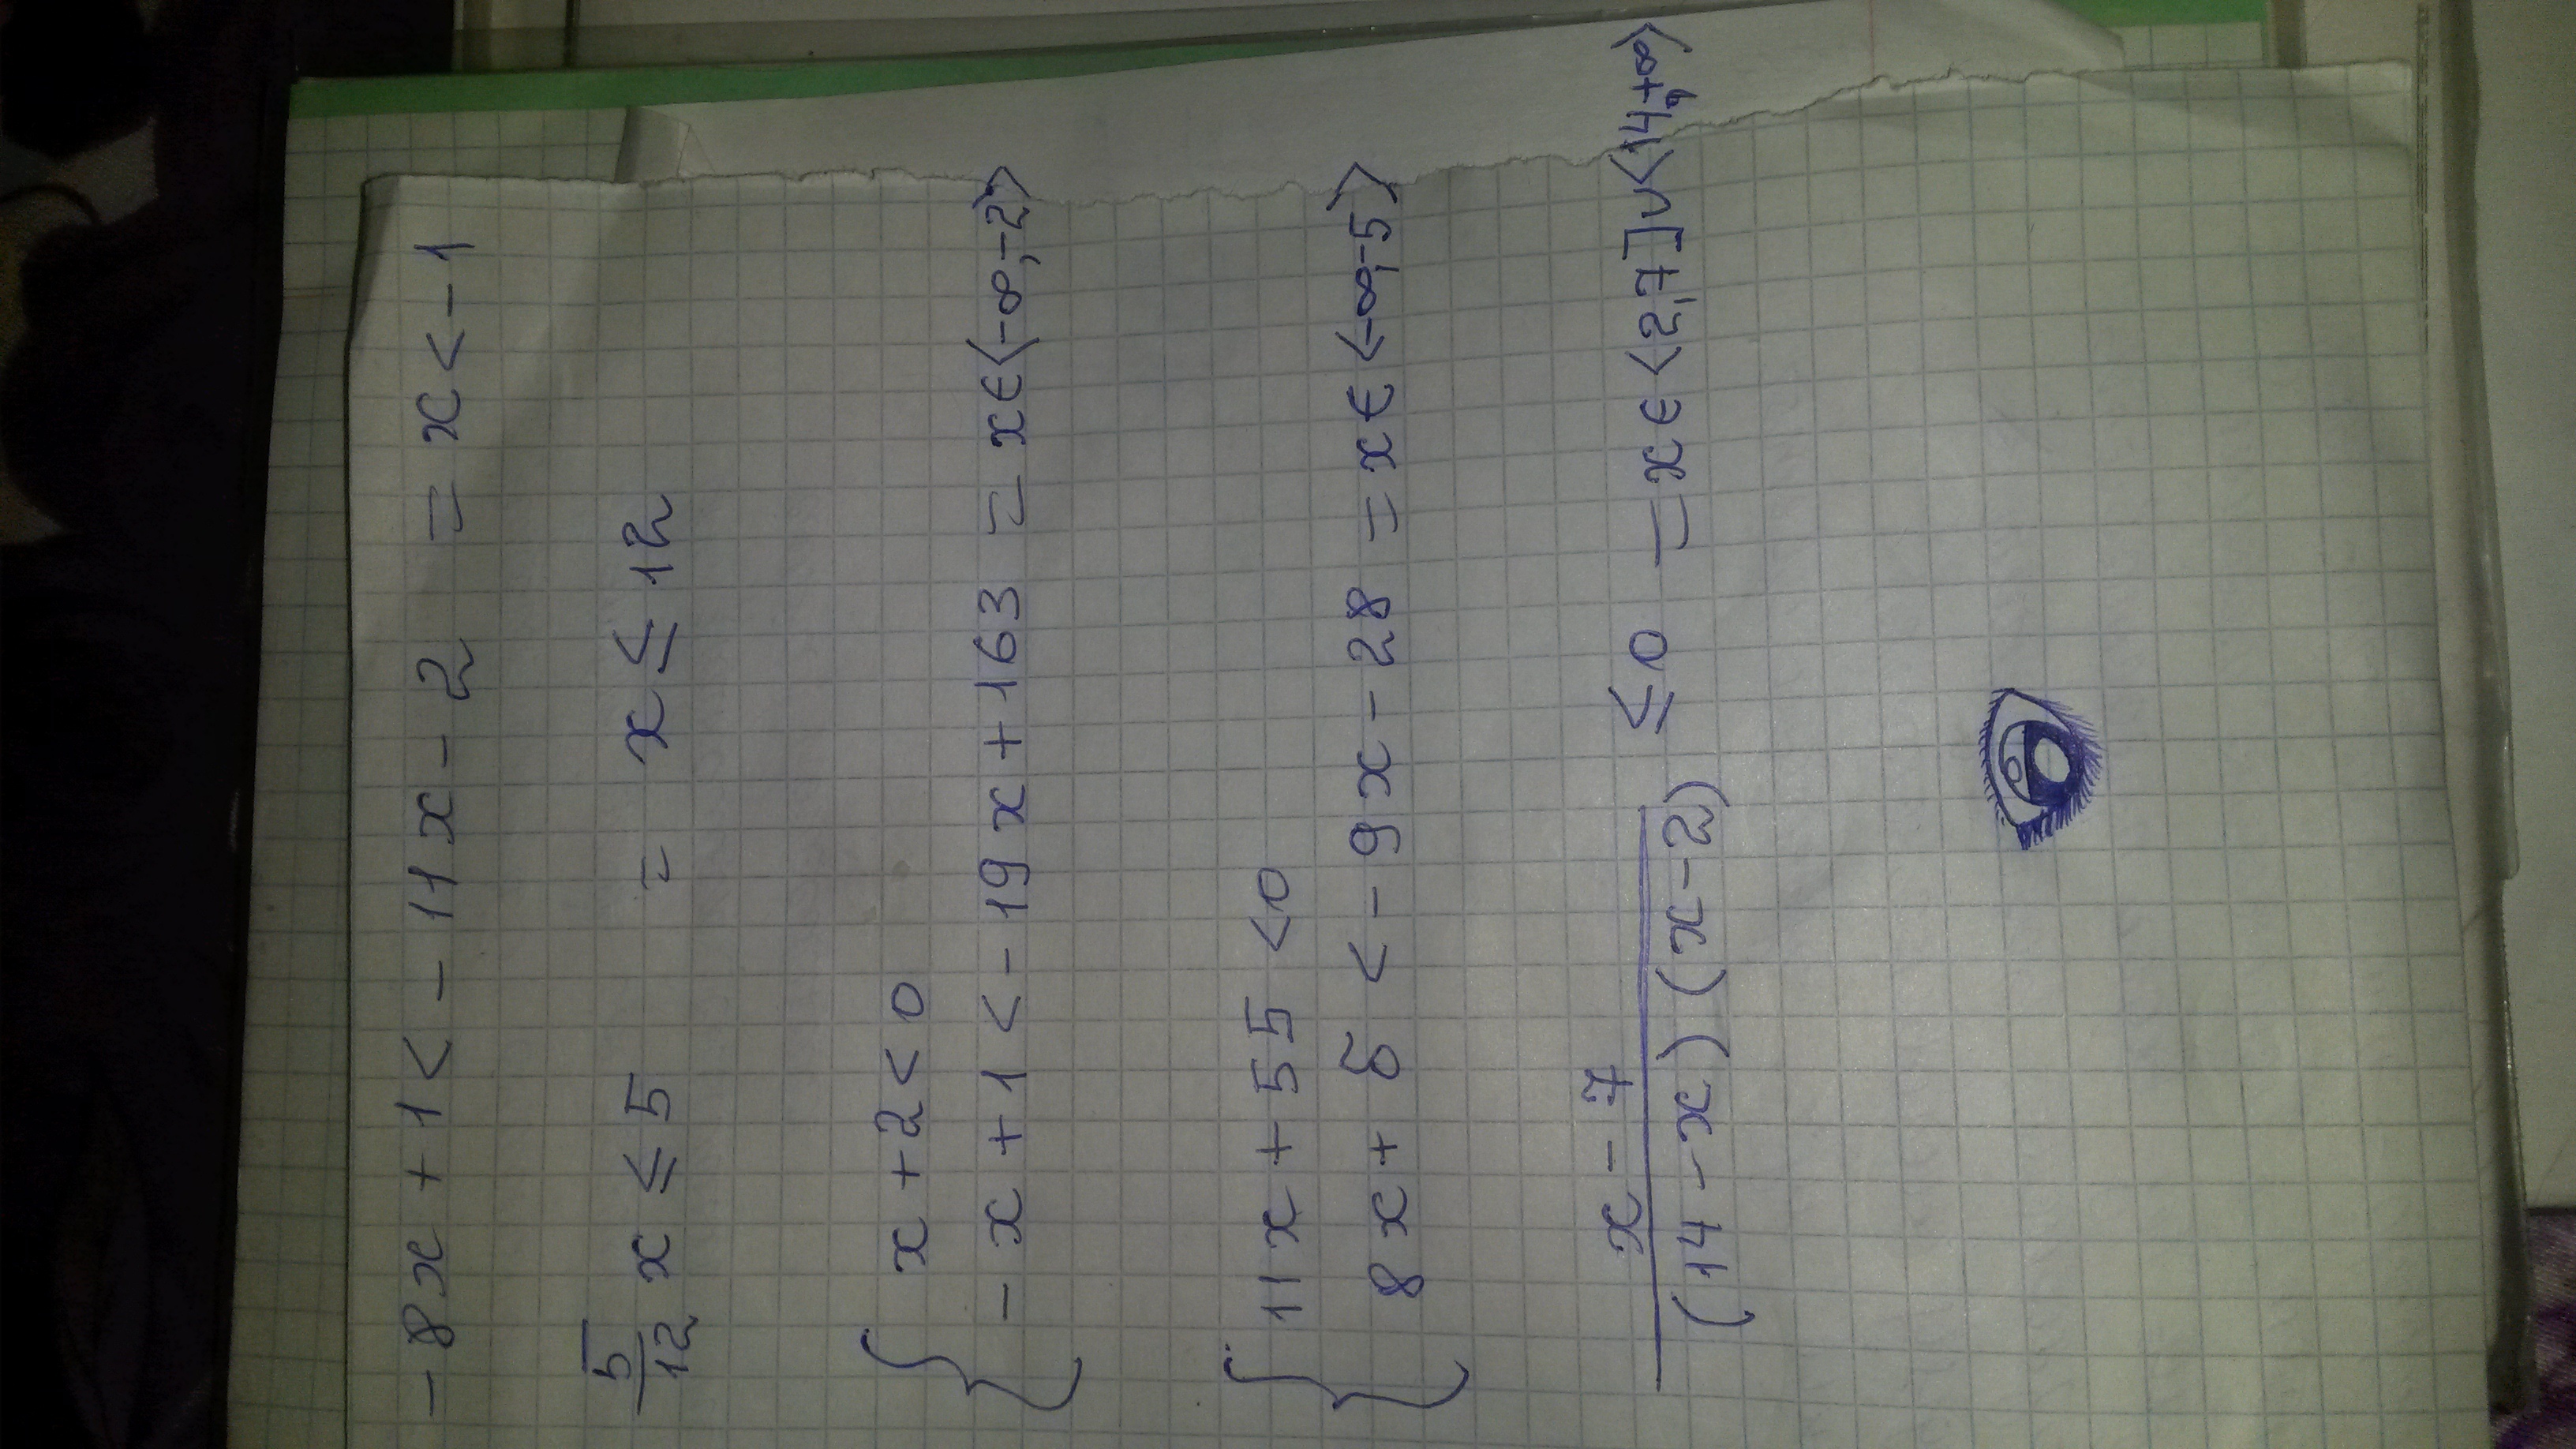 -8x+1<-11x-2 = x<-1
5/12 x ≤ 5 = x ≤ 12
{ x+2<0
-x+1<-19x+163 = x∈<-∞,-2>
{ 11x+55<0
8x+6<-9x-28 = x∈<-∞,-5>
x-7
(14-x)(x-2) ≤0 =x∈<2,7]∪<14,+∞>